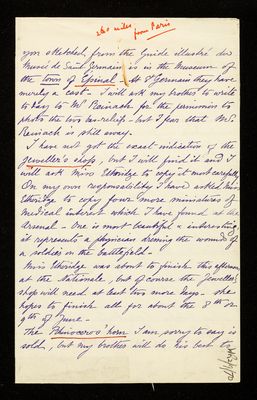 260 miles from Paris
you sketched, from the Guide illustré du
Musée de Saint Germain is in the Museum of
the town of Epinal - At St Germain they have
merely a cast - I will ask my brother to write
to day to Mr Reinach for the permission to
photo the two bas-reliefs - but I fear that Mr
Reinach is still away.
I have not got the exact indication of the
jeweller's shop, but I will find it and I
will ask Miss Etheridge to copy it most carefully
On my own responsibility I have asked Miss
Etheridge to copy four more miniatures of
medical interest which I have found at the
Arsenal - One is most beautiful & interesting
it represents a physician dressing the wounds of
a soldier on the battlefield -
Miss Etheridge was about to finish this afternoon
at the Nationale, but of course the Jeweller's
shop will need at least two more days - she
hopes to finish all for about the 8th or
9th of June -
The Rhinoceros' horn I am sorry to say is
sold, but my brother will do his best to